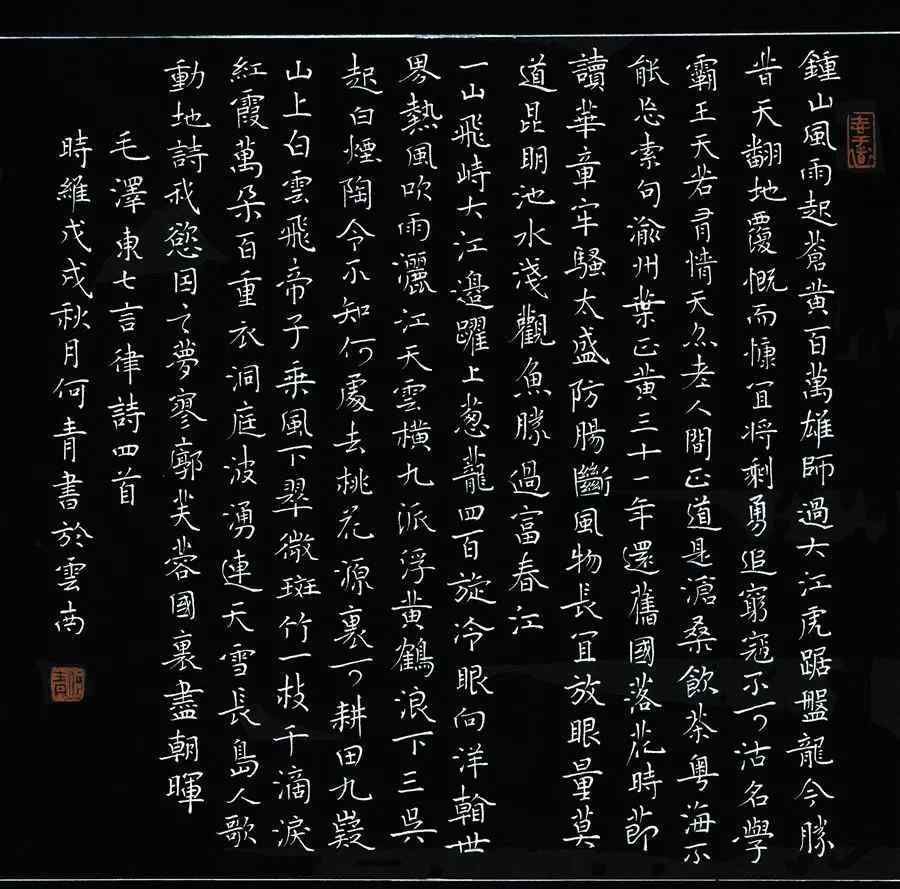 鍾山風雨起蒼黃百萬雄師過大江虎踞盤龍今勝
昔天翻地覆慨而慷宜将剩勇追窮寇不可沽名學
霸王天若有情天亦老人間正道是滄桑飲茶粵海不
能忘索句渝州葉正黃三十一年還舊國落花時節
讀華章牢騷太盛防腸斷風物長宜放眼量莫
道昆明池水淺觀魚勝過富春江
一山飛峙大江邊躍上葱蘢四百旋冷眼向洋看世
界熱風吹雨灑江天雲橫九派浮黃鶴浪下三吳
起白煙陶令不知何處去桃花源裏可耕田九嶷
山上白雲飛帝子乘風下翠微斑竹一枝千滴淚
紅霞萬朵百重衣洞庭波湧連天雪長島人歌
動地詩我慾因之夢寥廓芙蓉國裏盡朝暉
毛澤東七言律詩四首
時維戊戌秋月何青書於雲南
何青